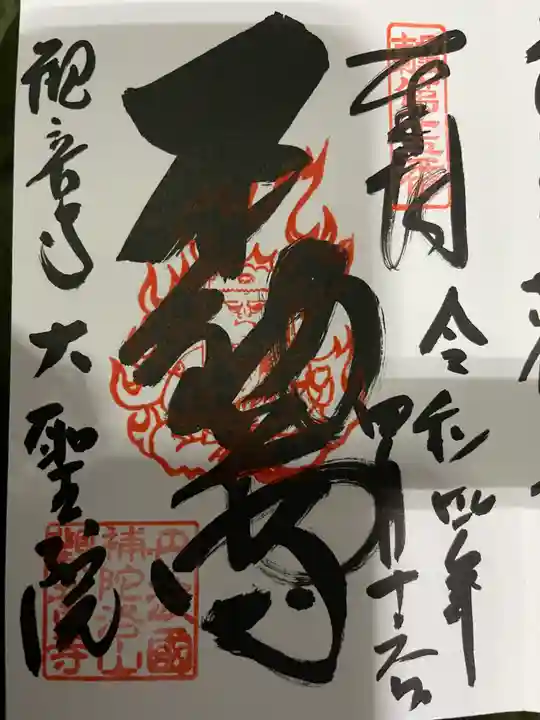 奉拝
令和四年
四月十六日
不動尊
観音寺 大聖院
丹波國
補陀洛山
観音寺